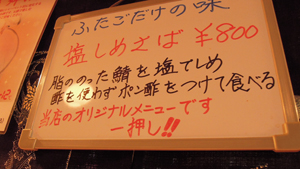 ふたごだけの味
塩しめさば ￥800
脂ののった鯖を塩でしめ
酢を使わずポン酢をつけて食べる
当店のオリジナルメニューです
一押し!!